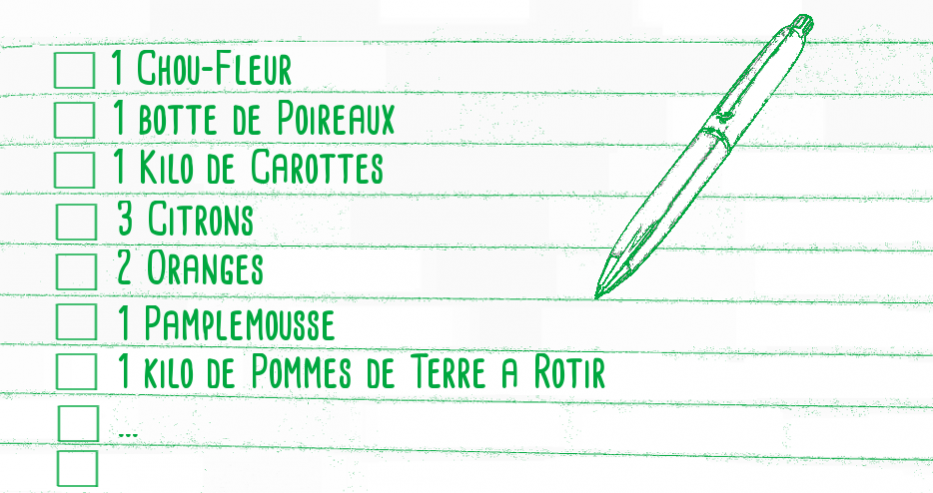 1 Chou-Fleur
1 botte de Poireaux
1 Kilo de Carottes
3 Citrons
2 Oranges
1 Pamplemousse
1 kilo de Pommes de Terre a Rotir
...